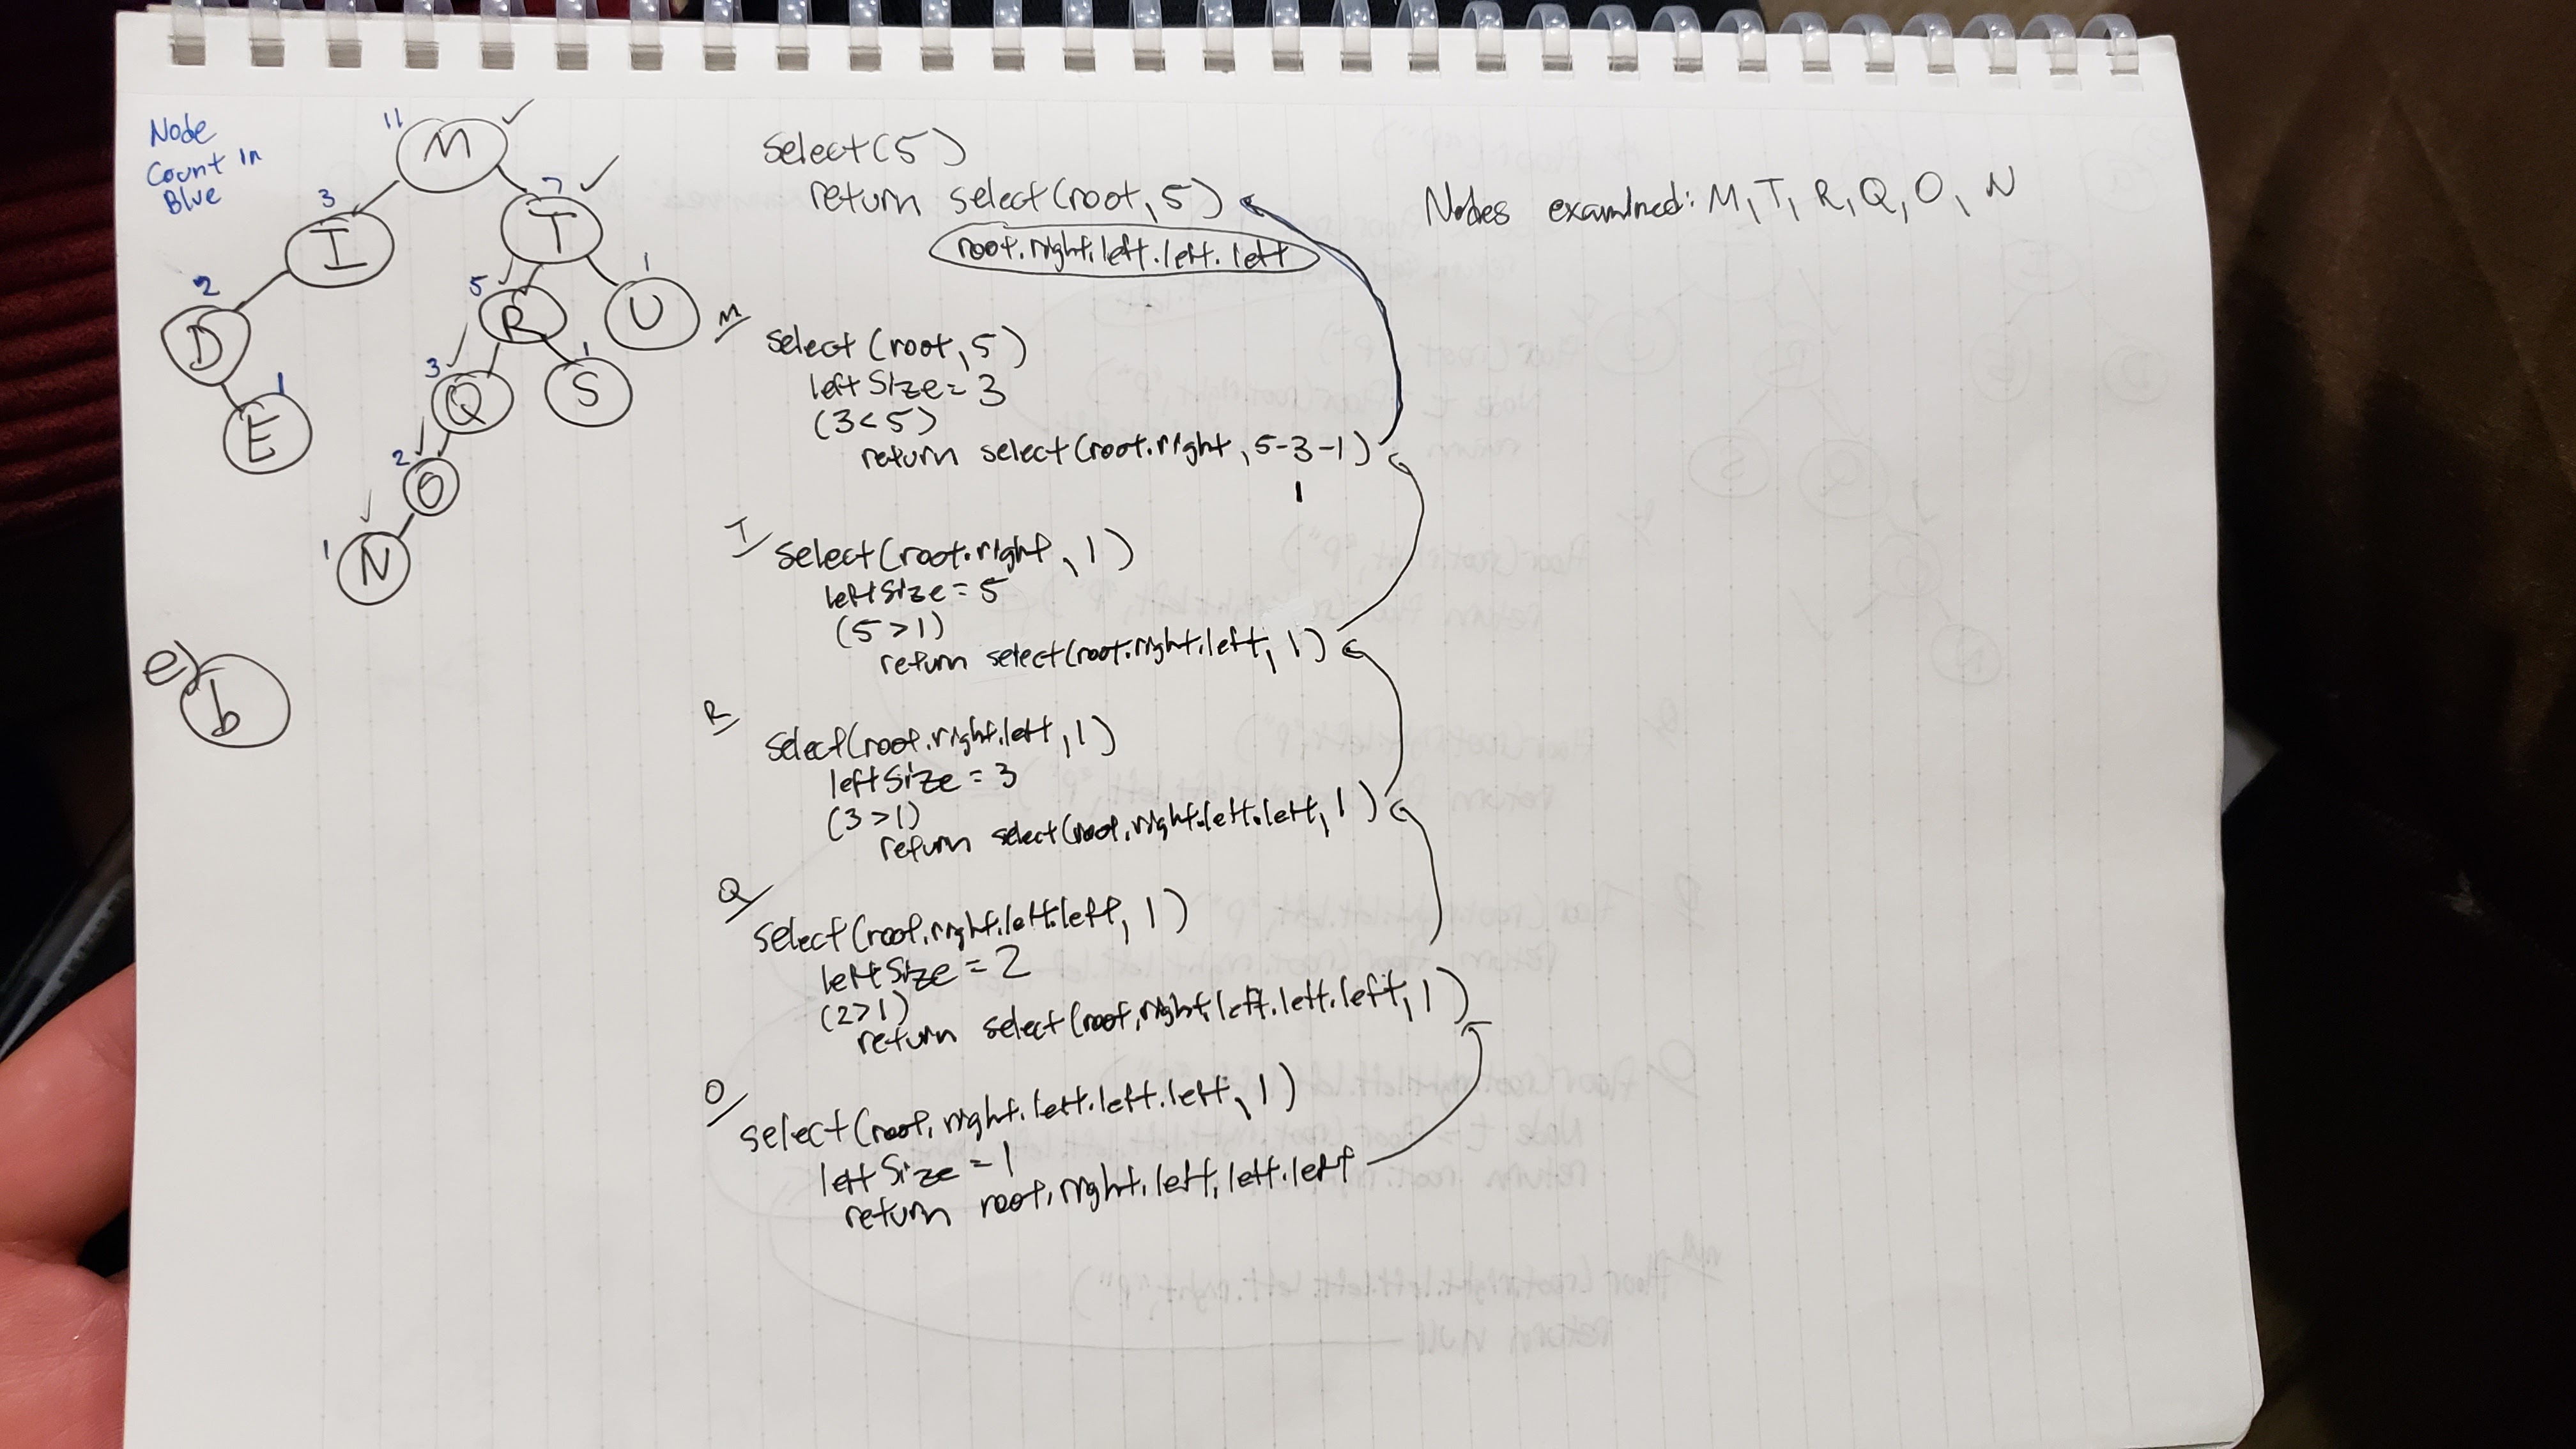 Node
Count in
Blue
11
M
3
I
7
T
2
D
1
E
5
R
1
U
3
Q
1
S
2
O
1
N
e)
b
select(5)
return select(root, 5)
root.right.left.left.left
M
select(root, 5)
leftSize = 3
(3<5)
return select(root.right, 5-3-1)
1
T
select(root.right, 1)
leftSize = 5
(5>1)
return select(root.right.left, 1)
R
select(root.right.left, 1)
leftSize = 3
(3>1)
return select(root.right.left.left, 1)
Q
select(root.right.left.left, 1)
leftSize = 2
(2>1)
return select(root.right.left.left.left, 1)
O
select(root.right.left.left.left, 1)
leftSize = 1
return root.right.left.left.left
Nodes examined: M, T, R, Q, O, N